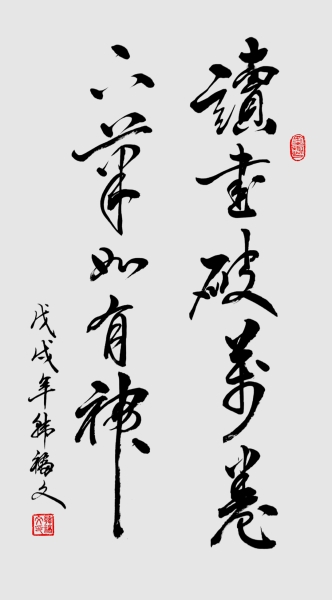 讀書破萬卷
下筆如有神
戊戌年韩福文